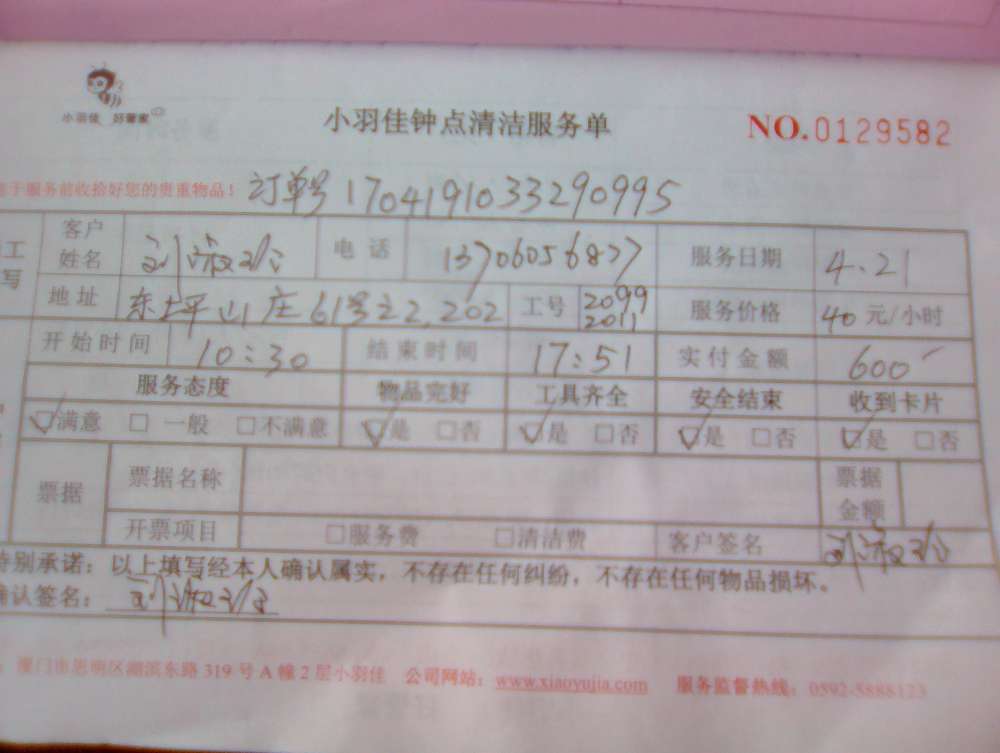 小羽佳 好管家
小羽佳钟点清洁服务单
NO.0129582
于服务前收拾好您的贵重物品！ 订单号 1704191033290995
工 客户姓名 刘 电话 13706056877 服务日期 4.21
写 地址 东上坪山庄61号之2,202 工号 2099 2011 服务价格 40 元/小时
开始时间 10:30 结束时间 17:51 实付金额 600
服务态度 物品完好 工具齐全 安全结束 收到卡片
☑满意 □一般 □不满意 ☑是 □否 ☑是 □否 ☑是 □否 ☑是 □否
票据 票据名称 票据金额
开票项目 □服务费 □清洁费 客户签名 刘
特别承诺：以上填写经本人确认属实，不存在任何纠纷，不存在任何物品损坏。
确认签名： 刘
厦门市思明区湖滨东路 319 号 A 幢 2 层小羽佳 公司网站：www.xiaoyujia.com 服务监督热线：0592-5888123